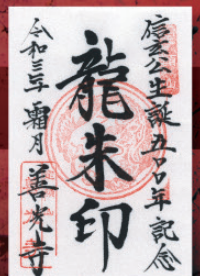 信玄公生誕五〇〇年記念
龍朱印
令和三年霜月
善光寺